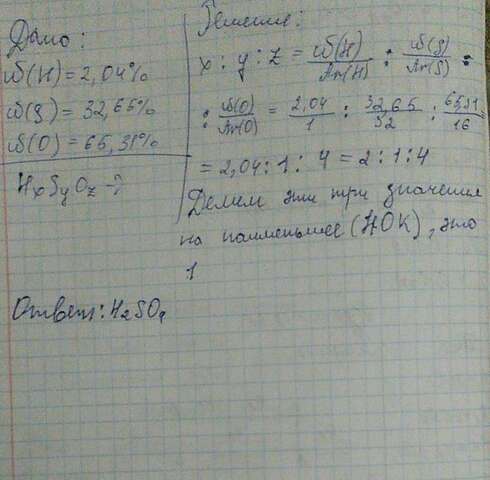 Дано:
ω(H)=2,04%
ω(S)=32,65%
ω(O)=65,31%
HxSyOz -?
Решение:
x : y : z = ω(H)/Ar(H) : ω(S)/Ar(S) :
: ω(O)/Ar(O) = 2,04/1 : 32,65/32 : 65,31/16
= 2,04:1: 4 = 2:1:4
Делим эти три значения
на наименьшее (НОК), это
1
Ответ: H2SO4